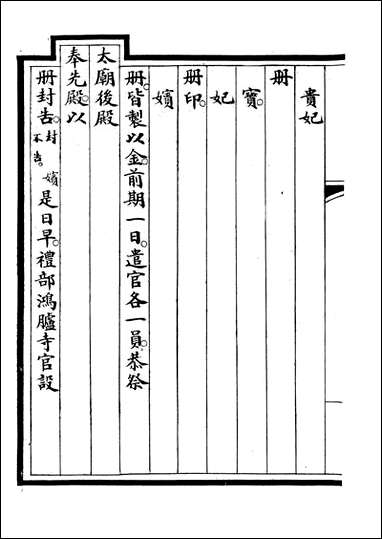 貴妃
冊
寶。
妃
冊印。
嬪
冊。皆製以金。前期一日。遣官各一員。恭祭
太廟後殿
奉先殿。以
冊封告。封嬪不告。是日早。禮部鴻臚寺官設